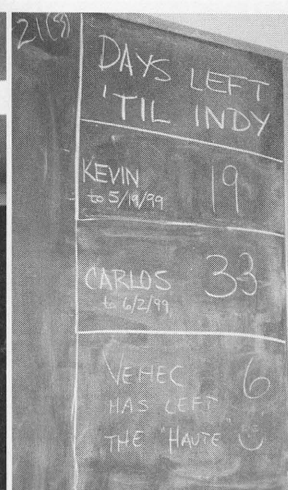 21(8)
DAYS LEFT
'TIL INDY
KEVIN 19
to 5/19/99
CARLOS 33
to 6/2/99
VEHEC 6
HAS LEFT
THE "HAUTE"